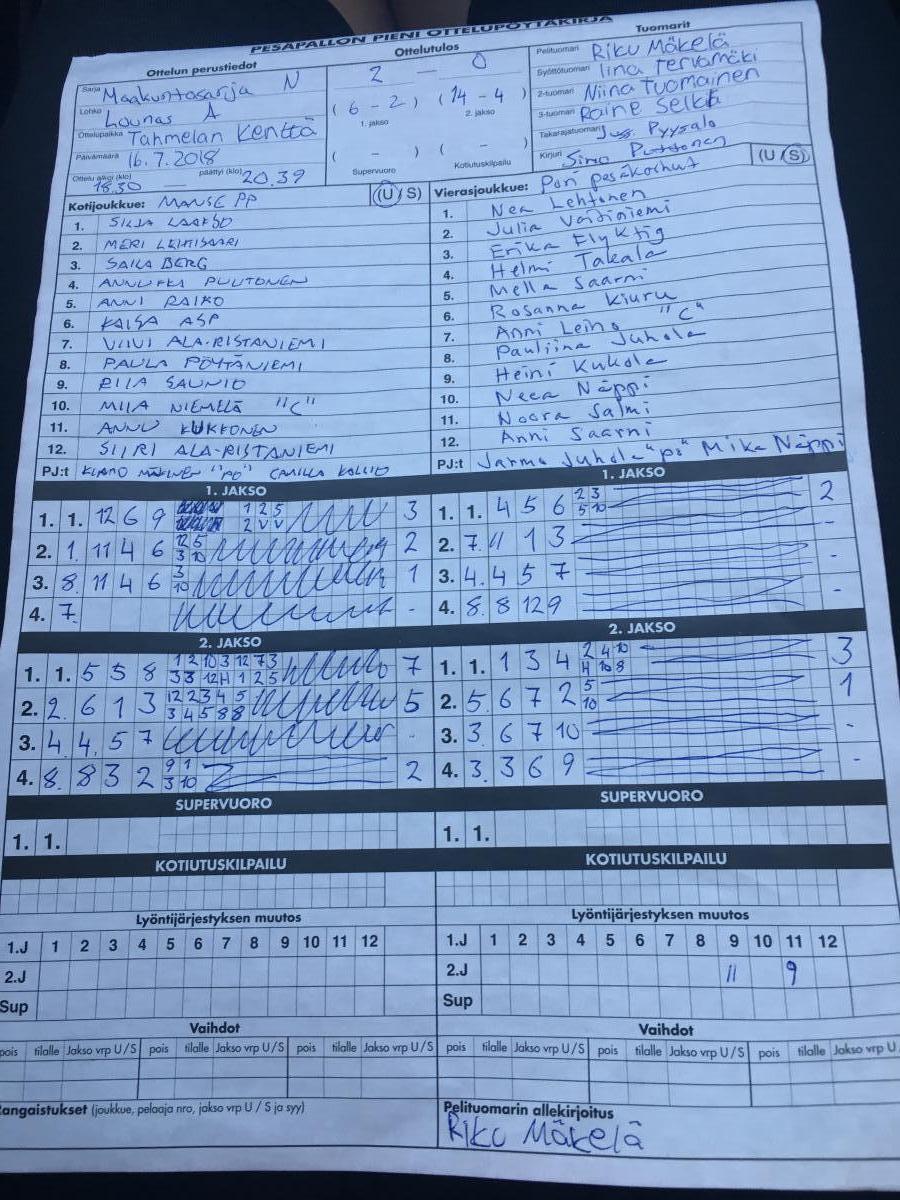 PESAPALLON PIENI OTTELUPÖYTÄKIRJA
Ottelun perustiedot
Sarja Maakuntasarja N
Lohko Lounas A
Ottelupaikka Tahmelan Kenttä
Päivämäärä 16.7.2018
Ottelu alkoi (klo) 18.30 — päättyi (klo) 20.39
Ottelutulos
2 — 0
( 6 - 2 ) ( 14 - 4 )
1. jakso 2. jakso
( - ) ( - )
Supervuoro Kotiutuskilpailu
Tuomarit
Pelituomari Riku Mäkelä
Syöttötuomari Iina Tervamäki
2-tuomari Niina Tuomainen
3-tuomari Raine Selkä
Takarajatuomari Pyysalo
Kirjuri Simo Puttonen
Kotijoukkue: MANSE PP (U/S)
1. SILJA LAAKSO
2. MERI LEHTISAARI
3. SAILA BERG
4. ANNUKKA PUUTONEN
5. ANNI RAIKO
6. KAISA ASP
7. VIIVI ALA-RISTANIEMI
8. PAULA PÖYTÄNIEMI
9. RIIA SAUNIO
10. MIIA NIEMELÄ "C"
11. ANNU KUKKONEN
12. SIIRI ALA-RISTANIEMI
PJ:t MÄKINEN "PÖ" CAMILLA KALLIO
Vierasjoukkue: Pori pesäkarhut (U/S)
1. Nea Lehtonen
2. Julia Voitiniemi
3. Erika Flyktig
4. Helmi Takala
5. Mella Saarni
6. Rosanna Kiuru
7. Anni Leino "C"
8. Pauliina Juhola
9. Heini Kukola
10. Neea Näppi
11. Noora Salmi
12. Anni Saarni
PJ:t Jarmo Juhola "pö" Mika Näppi
1. JAKSO
1. 1. 12 6 9 1 2 5 3
2 V V
2. 1. 11 4 6 12 5 2
3 10
3. 8. 11 4 6 3 1
10
4. 7. -
1. JAKSO
1. 1. 4 5 6 2 3 2
5 10
2. 7. 11 1 3 -
3. 4. 4 5 7 -
4. 8. 8 12 9 -
2. JAKSO
1. 1. 5 5 8 1 2 10 3 12 7 3 7
3 3 12 4 1 2 5
2. 2. 6 1 3 12 2 3 4 5 5
3 4 5 8 8
3. 4. 4 5 7 -
4. 8. 8 3 2 9 1 2
3 10
2. JAKSO
1. 1. 1 3 4 2 4 10 3
4 10 8
2. 5. 6 7 2 5 1
10
3. 3. 6 7 10 -
4. 3. 3 6 9 -
SUPERVUORO
1. 1.
SUPERVUORO
1. 1.
KOTIUTUSKILPAILU
KOTIUTUSKILPAILU
Lyöntijärjestyksen muutos
1.J 1 2 3 4 5 6 7 8 9 10 11 12
2.J
Sup
Lyöntijärjestyksen muutos
1.J 1 2 3 4 5 6 7 8 9 10 11 12
2.J 11 9
Sup
Vaihdot
pois tilalle Jakso vrp U/S pois tilalle Jakso vrp U/S pois tilalle Jakso vrp U/S
Vaihdot
pois tilalle Jakso vrp U/S pois tilalle Jakso vrp U/S pois tilalle Jakso vrp U
angaistukset (joukkue, pelaaja nro, jakso vrp U / S ja syy)
Pelituomarin allekirjoitus
Riku Mäkelä